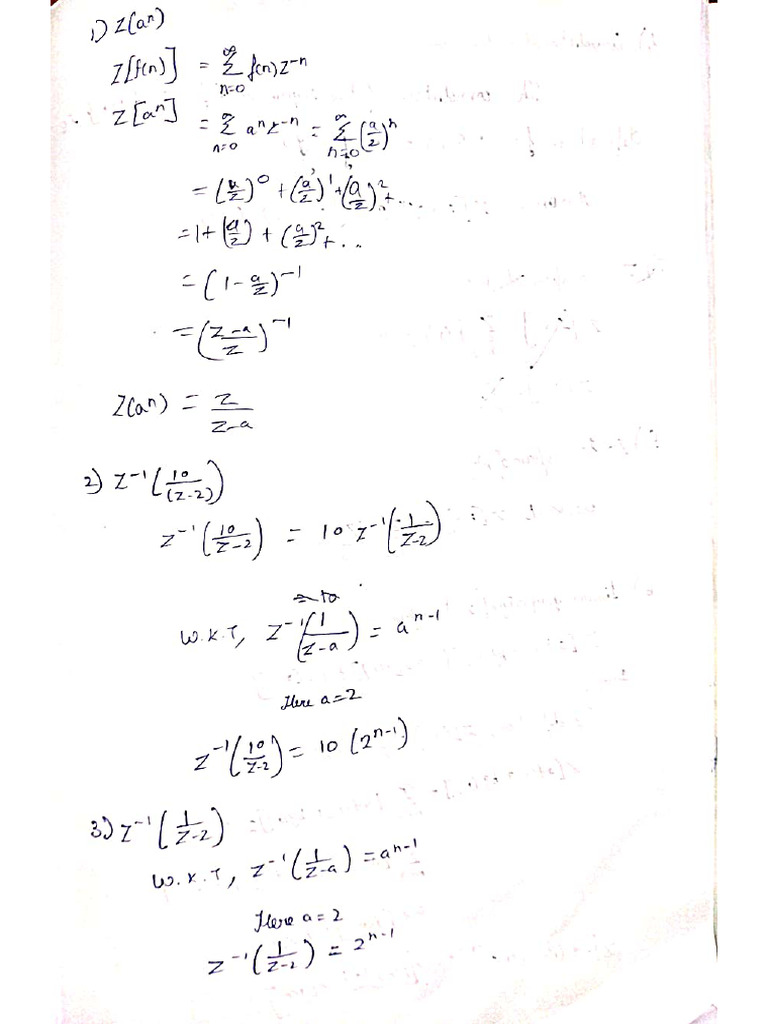 1) Z(aⁿ)
Z[f(n)] = ∞ Σ n=0 f(n) z⁻ⁿ
Z[aⁿ] = ∞ Σ n=0 aⁿ z⁻ⁿ = ∞ Σ n=0 (a/z)ⁿ
= (a/z)⁰ + (a/z)¹ + (a/z)² + ...
= 1 + (a/z) + (a/z)² + ...
= (1 - a/z)⁻¹
= (z-a/z)⁻¹
Z(aⁿ) = z/z-a
2) Z⁻¹(10/(z-2))
z⁻¹(10/z-2) = 10 z⁻¹(1/z-2)
= 10
W.K.T, Z⁻¹(1/z-a) = aⁿ⁻¹
Here a=2
z⁻¹(10/z-2) = 10 (2ⁿ⁻¹)
3) z⁻¹(1/z-2)
W.K.T, z⁻¹(1/z-a) = aⁿ⁻¹
Here a=2
z⁻¹(1/z-2) = 2ⁿ⁻¹